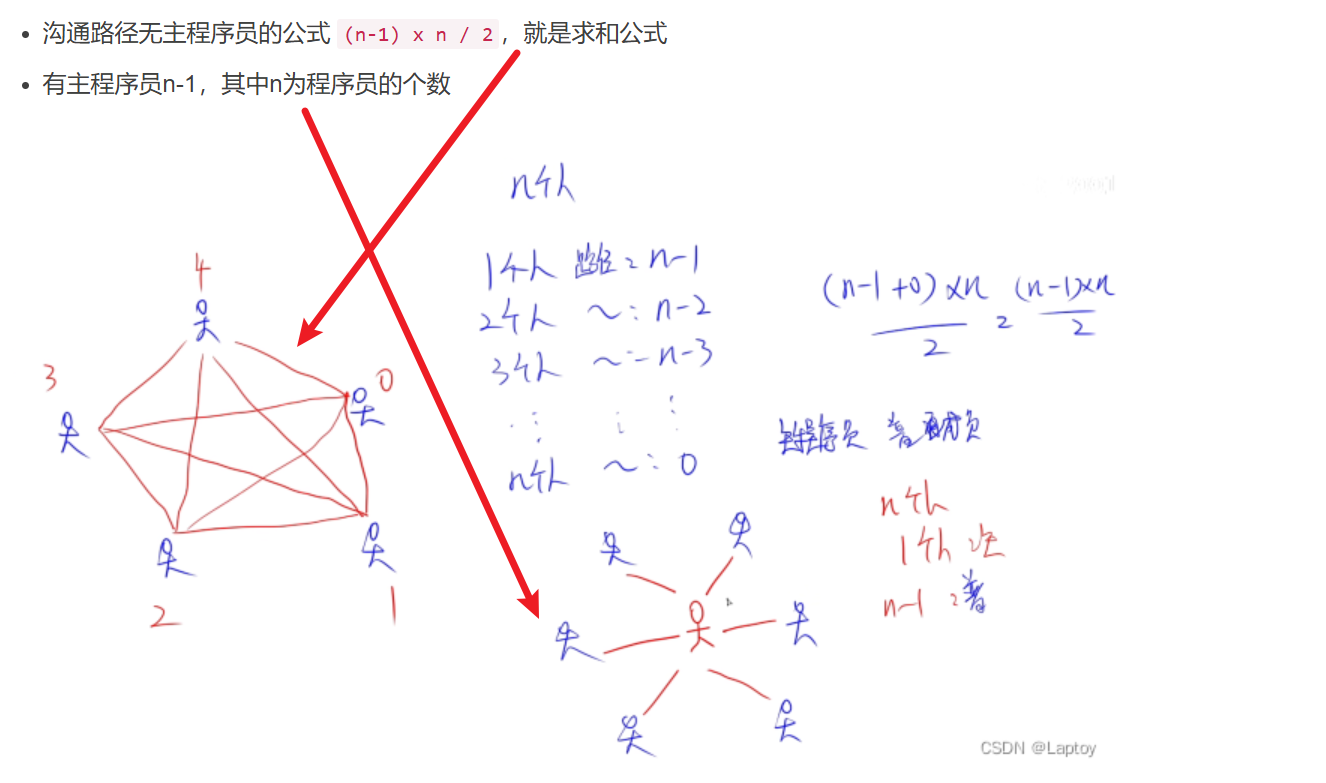 沟通路径无主程序员的公式 (n-1) x n / 2，就是求和公式
有主程序员n-1，其中n为程序员的个数
n个人
1个人 路径：n-1
2个人 ～：n-2
3个人 ～：n-3
⋮ ⋮ ⋮
n个人 ～：0
(n-1+0)×n / 2 = (n-1)×n / 2
4
3
0
2
1
主程序员 普通程序员
n个人
1个人
n-1：普
CSDN @Laptoy